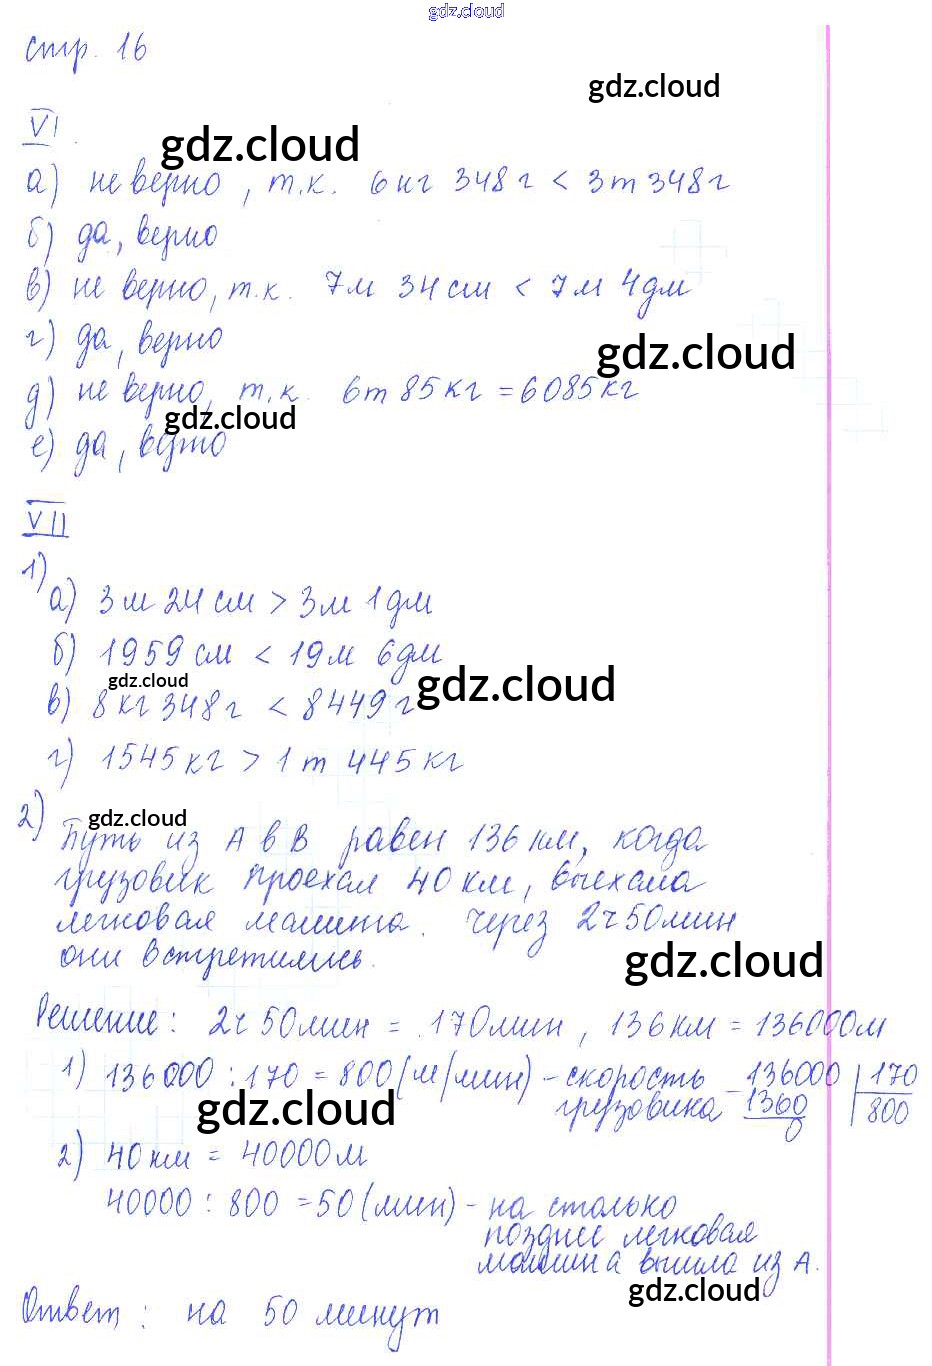 gdz.cloud
стр. 16
gdz.cloud
VI.
gdz.cloud
а) не верно, т.к. 6 кг 348 г < 3 т 348 г
б) да, верно
в) не верно, т.к. 7 м 34 см < 7 м 4 дм
г) да, верно
gdz.cloud
д) не верно, т.к. 6 т 85 кг = 6085 кг
gdz.cloud
е) да,
VII
1)
а) 3 м 24 см > 3 м 1 дм
б) 1959 см < 19 м 6 дм
gdz.cloud
gdz.cloud
в) 8 кг 348 г < 8449 г
г) 1545 кг > 1 т 445 кг
2)
gdz.cloud
Путь из А в В равен 136 км, когда
грузовик проехал 40 км, выехала
легковая машина. Через 2 ч 50 мин
они встретились.
gdz.cloud
Решение: 2 ч 50 мин = 170 мин, 136 км = 136000 м
1) 136000 : 170 = 800 (м/мин) - скорость 136000 | 170
грузовика 1360 800
0
gdz.cloud
2) 40 км = 40000 м
40000 : 800 = 50 (мин) - на столько
позднее легковая
машина вышла из А.
gdz.cloud
Ответ: на 50 минут